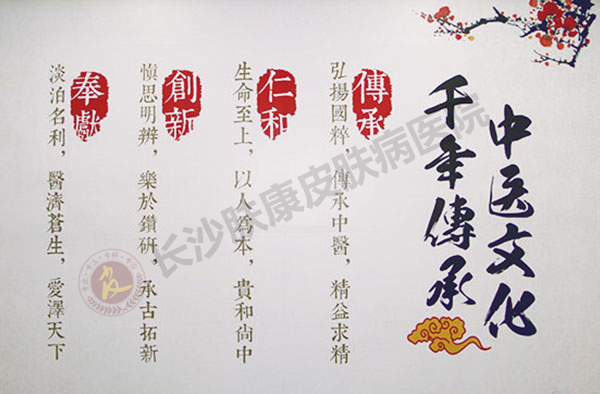 中医文化
千年傳承
傳承
弘揚國粹，傳承中醫，精益求精
仁和
生命至上，以人為本，貴和尚中
創新
慎思明辨，樂於鑽研，承古拓新
奉獻
淡泊名利，醫濟蒼生，愛澤天下
长沙肤康皮肤病医院
皮